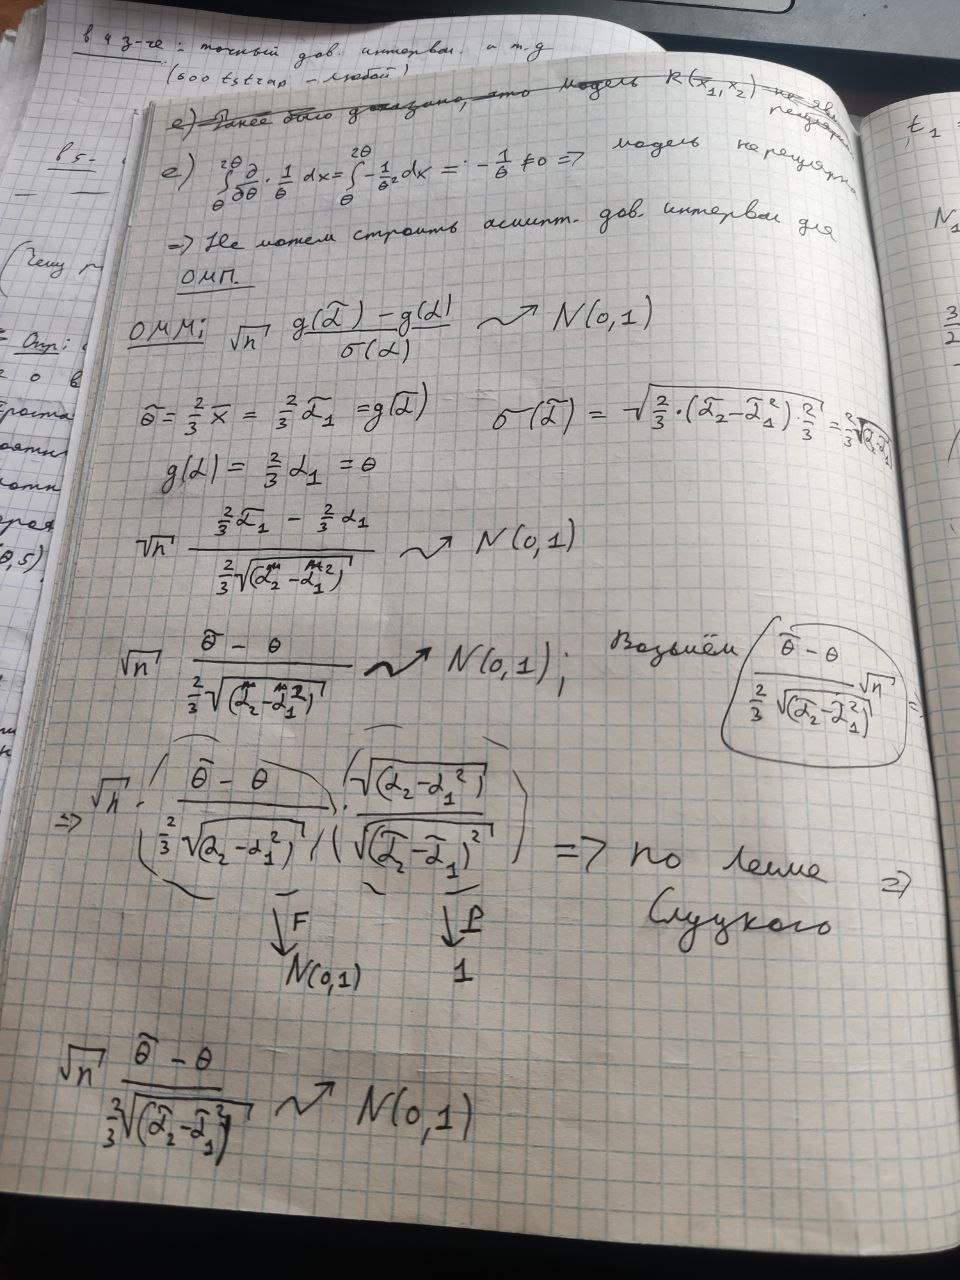 в 4 з-че: точный дов. интервал. и т.д
(bootstrap - любой)
в 5-
е) Ранее было доказано, что модель R(x₁, x₂) не явл
регулярн
е) ∫_θ^{2θ} ∂/∂θ · 1/θ dx = ∫_θ^{2θ} -1/θ² dx = -1/θ ≠ 0 => модель нерегулярн
=> Не можем строить асимпт. дов. интервал для
ОМП.
ОММ: √n (g(α̃) - g(α))/σ(α) ⇝ N(0,1)
θ̃ = 2/3 x̄ = 2/3 α̃₁ = g(α̃) σ(α̃) = √(2/3·(α̃₂-α̃₁²)·2/3) = 2/3 √(α̃₂-α̃₁²)
g(α) = 2/3 α₁ = θ
√n (2/3 α̃₁ - 2/3 α₁)/(2/3 √(α₂-α₁²)) ⇝ N(0,1)
√n (θ̃ - θ)/(2/3 √(α₂-α₁²)) ⇝ N(0,1); Возьмём (θ̃ - θ)/(2/3 √(α̃₂-α̃₁²)) √n =>
=> √n · ((θ̃ - θ)/(2/3 √(α₂-α₁²))) · (√(α₂-α₁²)/√(α̃₂-α̃₁)²) => по лемме =>
Слуцкого
↓F ↓P
N(0,1) 1
√n (θ̃ - θ)/(2/3 √(α̃₂-α̃₁²)) ⇝ N(0,1)
t₁ =
N₁
3/2